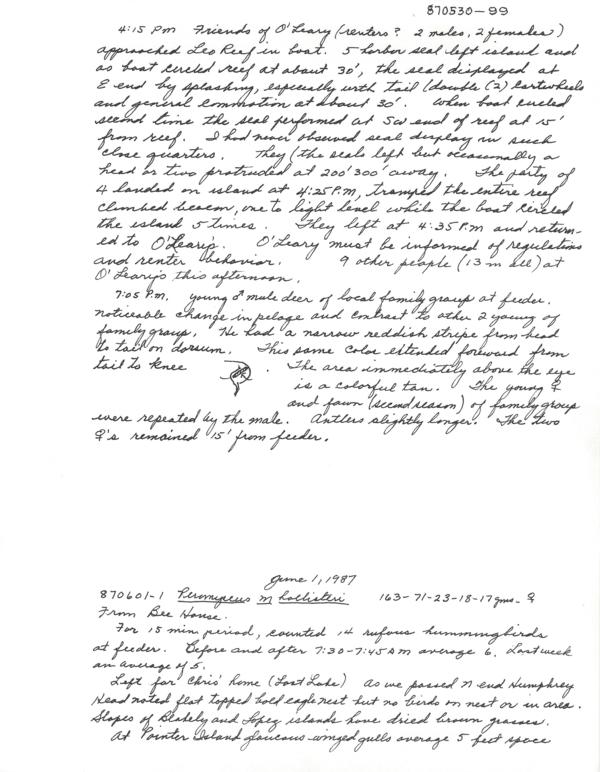 870530-99
4:15 PM Friends of O'Leary (renters? 2 males, 2 females)
approached Leo Reef in boat. 5 harbor seal left island and
as boat circled reef at about 30', the seal displayed at
E end by splashing, especially with tail (double (2) cartwheels
and general commotion at about 30'. When boat circled
second time the seal performed at SW end of reef at 15'
from reef. I had never observed seal display in such
close quarters. They (the seals left but occasionally a
head or two protruded at 200'300' away. The party of
4 landed on island at 4:25 P.M, tramped the entire reef
climbed beacon, one to light level while the boat circled
the island 5 times. They left at 4:35 P.M and return-
ed to O'Leary's. O'Leary must be informed of regulations
and renter behavior. 9 other people (13 in all) at
O'Leary's this afternoon.
7:05 P.M. young ♂ male deer of local family group at feeder.
noticeable change in pelage and contrast to other 2 young of
family group. He had a narrow reddish stripe from head
to tail on dorsum. This same color extended foreward from
tail to knee . The area immediately above the eye
is a colorful tan. The young ♀
and fawn (second season) of family group
were repeated by the male. Antlers slightly longer. The two
♀'s remained 15' from feeder.
June 1, 1987
870601-1 Peromyscus m hollisteri 163-71-23-18-17gms. ♀
From Bee House.
For 15 min. period, counted 14 rufous hummingbirds
at feeder. Before and after 7:30-7:45 AM average 6. Last week
an average of 5.
Left for Chris' home (Lost Lake) As we passed N end Humphrey
Head noted flat topped bald eagle nest but no birds on nest or in area.
Slopes of Blakely and Lopez islands have dried brown grasses.
At Pointer Island glaucous-winged gulls average 5 feet space